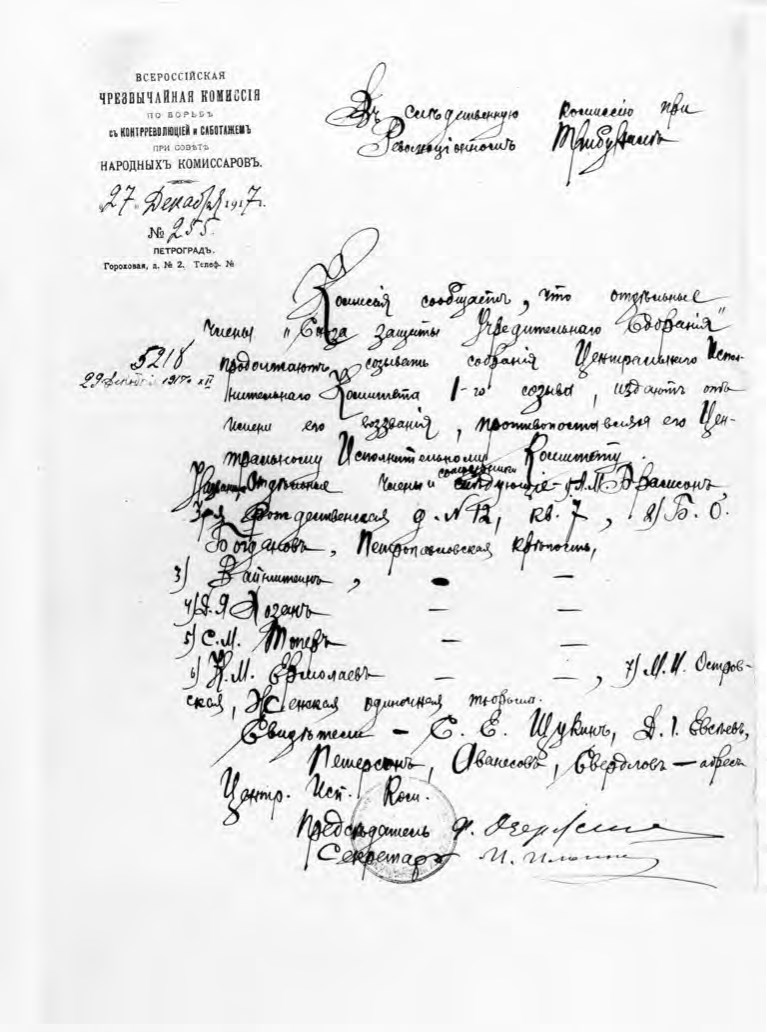 ВСЕРОССІЙСКАЯ
ЧРЕЗВЫЧАЙНАЯ КОМИССІЯ
ПО БОРЬБѢ
съ КОНТРРЕВОЛЮЦІЕЙ и САБОТАЖЕМЪ
ПРИ СОВѢТѢ
НАРОДНЫХЪ КОМИССАРОВЪ.
„27„ Декабря 1917 г.
№ 255.
ПЕТРОГРАДЪ.
Гороховая, д. № 2. Телеф. №
Въ слѣдственную комиссію при
Революціонномъ Трибуналѣ
Комиссія сообщаетъ, что отдѣльные
члены „Союза защиты Учредительнаго Собранія"
5218
продолжаютъ созывать собранія Центральнаго Испол-
29 1917 XII
нительнаго Комитета 1-го созыва, издаютъ отъ
имени его воззванія, противопоставляя его Цен-
тральному Исполнительному Комитету.
Отдѣльные члены слѣдующіе - 1) А. М.
Рождественская д. N 12, кв. 7, 2) Б. О.
Богдановъ, Петропавловская крѣпость,
3) Вайнштейнъ, — —
4) Д. Я — —
5) С. М. — —
6) К. М. Ермолаевъ — —, 7) М. И. Островс-
ская, Женская одиночная тюрьма.
Свидѣтели - С. Е. Щукинъ, Д. І. Евсѣевъ,
Петерсонъ, Аванесовъ, Свердловъ — адресъ
Центр. Исп. Ком.
Предсѣдатель Ф. Дзержинс
Секретарь И. Ильинъ